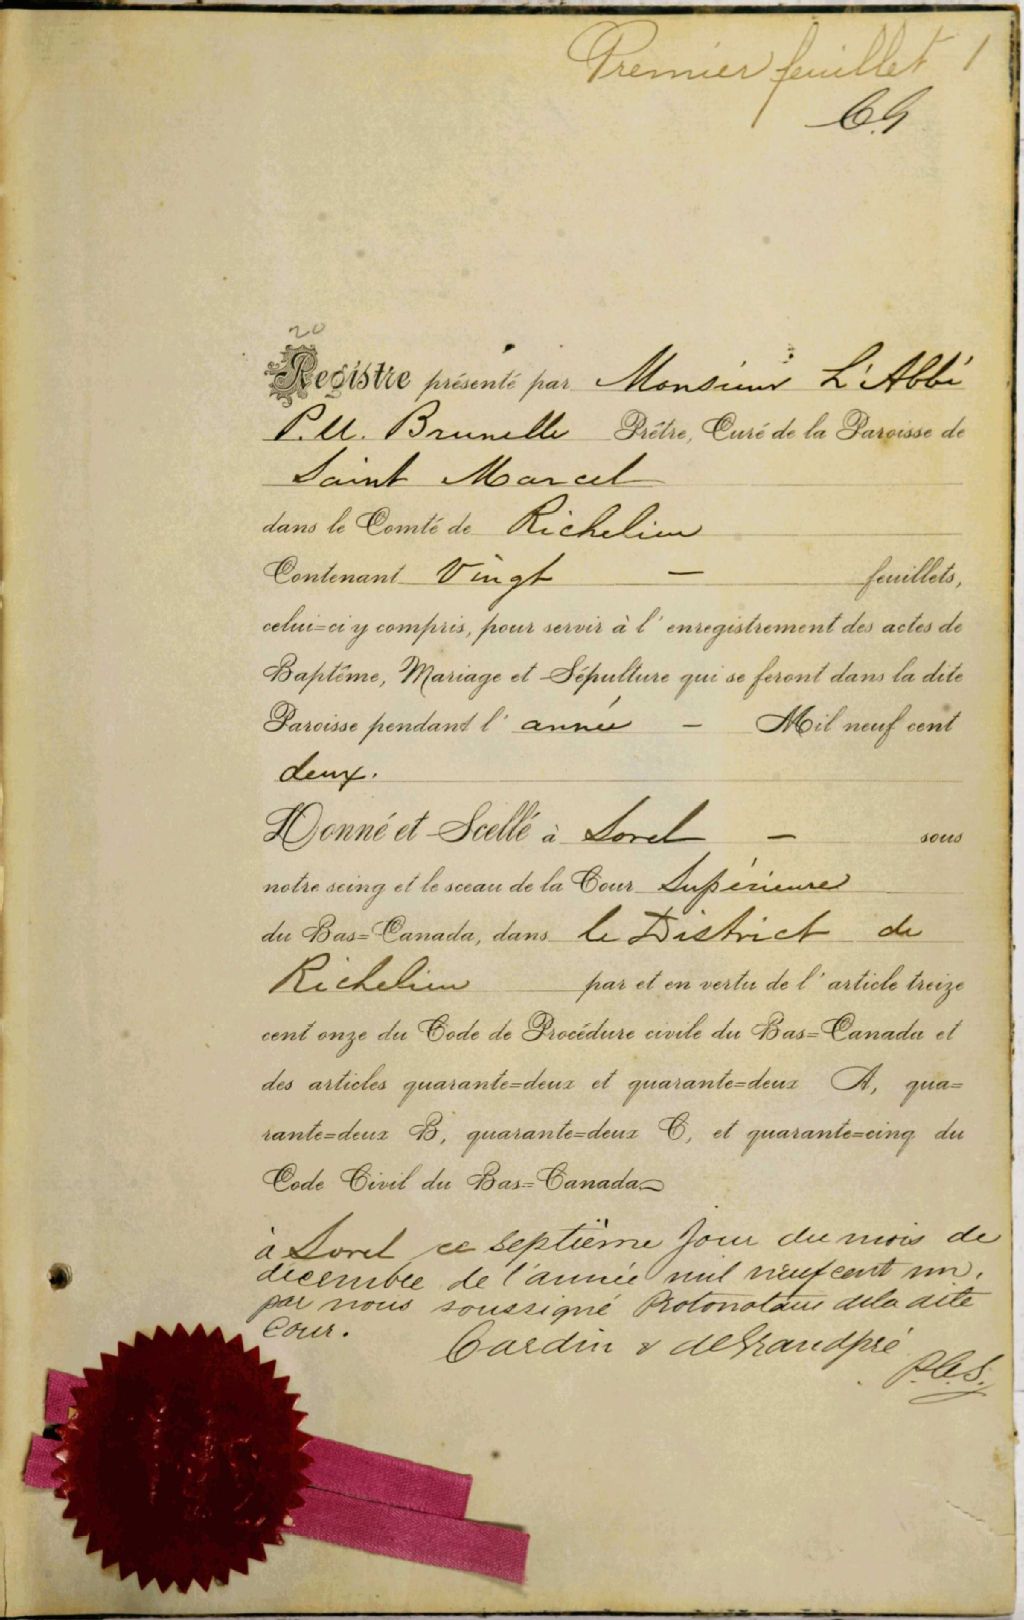 Premier feuillet 1
C.G
20
Registre présenté par Monsieur L'Abbé
P.U. Brunelle Prêtre, Curé de la Paroisse de
Saint Marcel
dans le Comté de Richelieu
Contenant Vingt — feuillets,
celui=ci y compris, pour servir à l'enregistrement des actes de
Baptême, Mariage et Sépulture qui se feront dans la dite
Paroisse pendant l'année — Mil neuf cent
deux.
Donné et Scellé à Sorel — sous
notre seing et le sceau de la Cour Supérieure
du Bas=Canada, dans le District de
Richelieu par et en vertu de l'article treize
cent onze du Code de Procédure civile du Bas=Canada et
des articles quarante=deux et quarante=deux A, qua=
rante=deux B, quarante=deux C, et quarante=cinq du
Code Civil du Bas=Canada—
à Sorel ce septième jour du mois de
décembre de l'année mil neuf cent un,
par nous soussigné Protonotaire de la dite
Cour.
Cardin & deGrandpré
P.C.S.